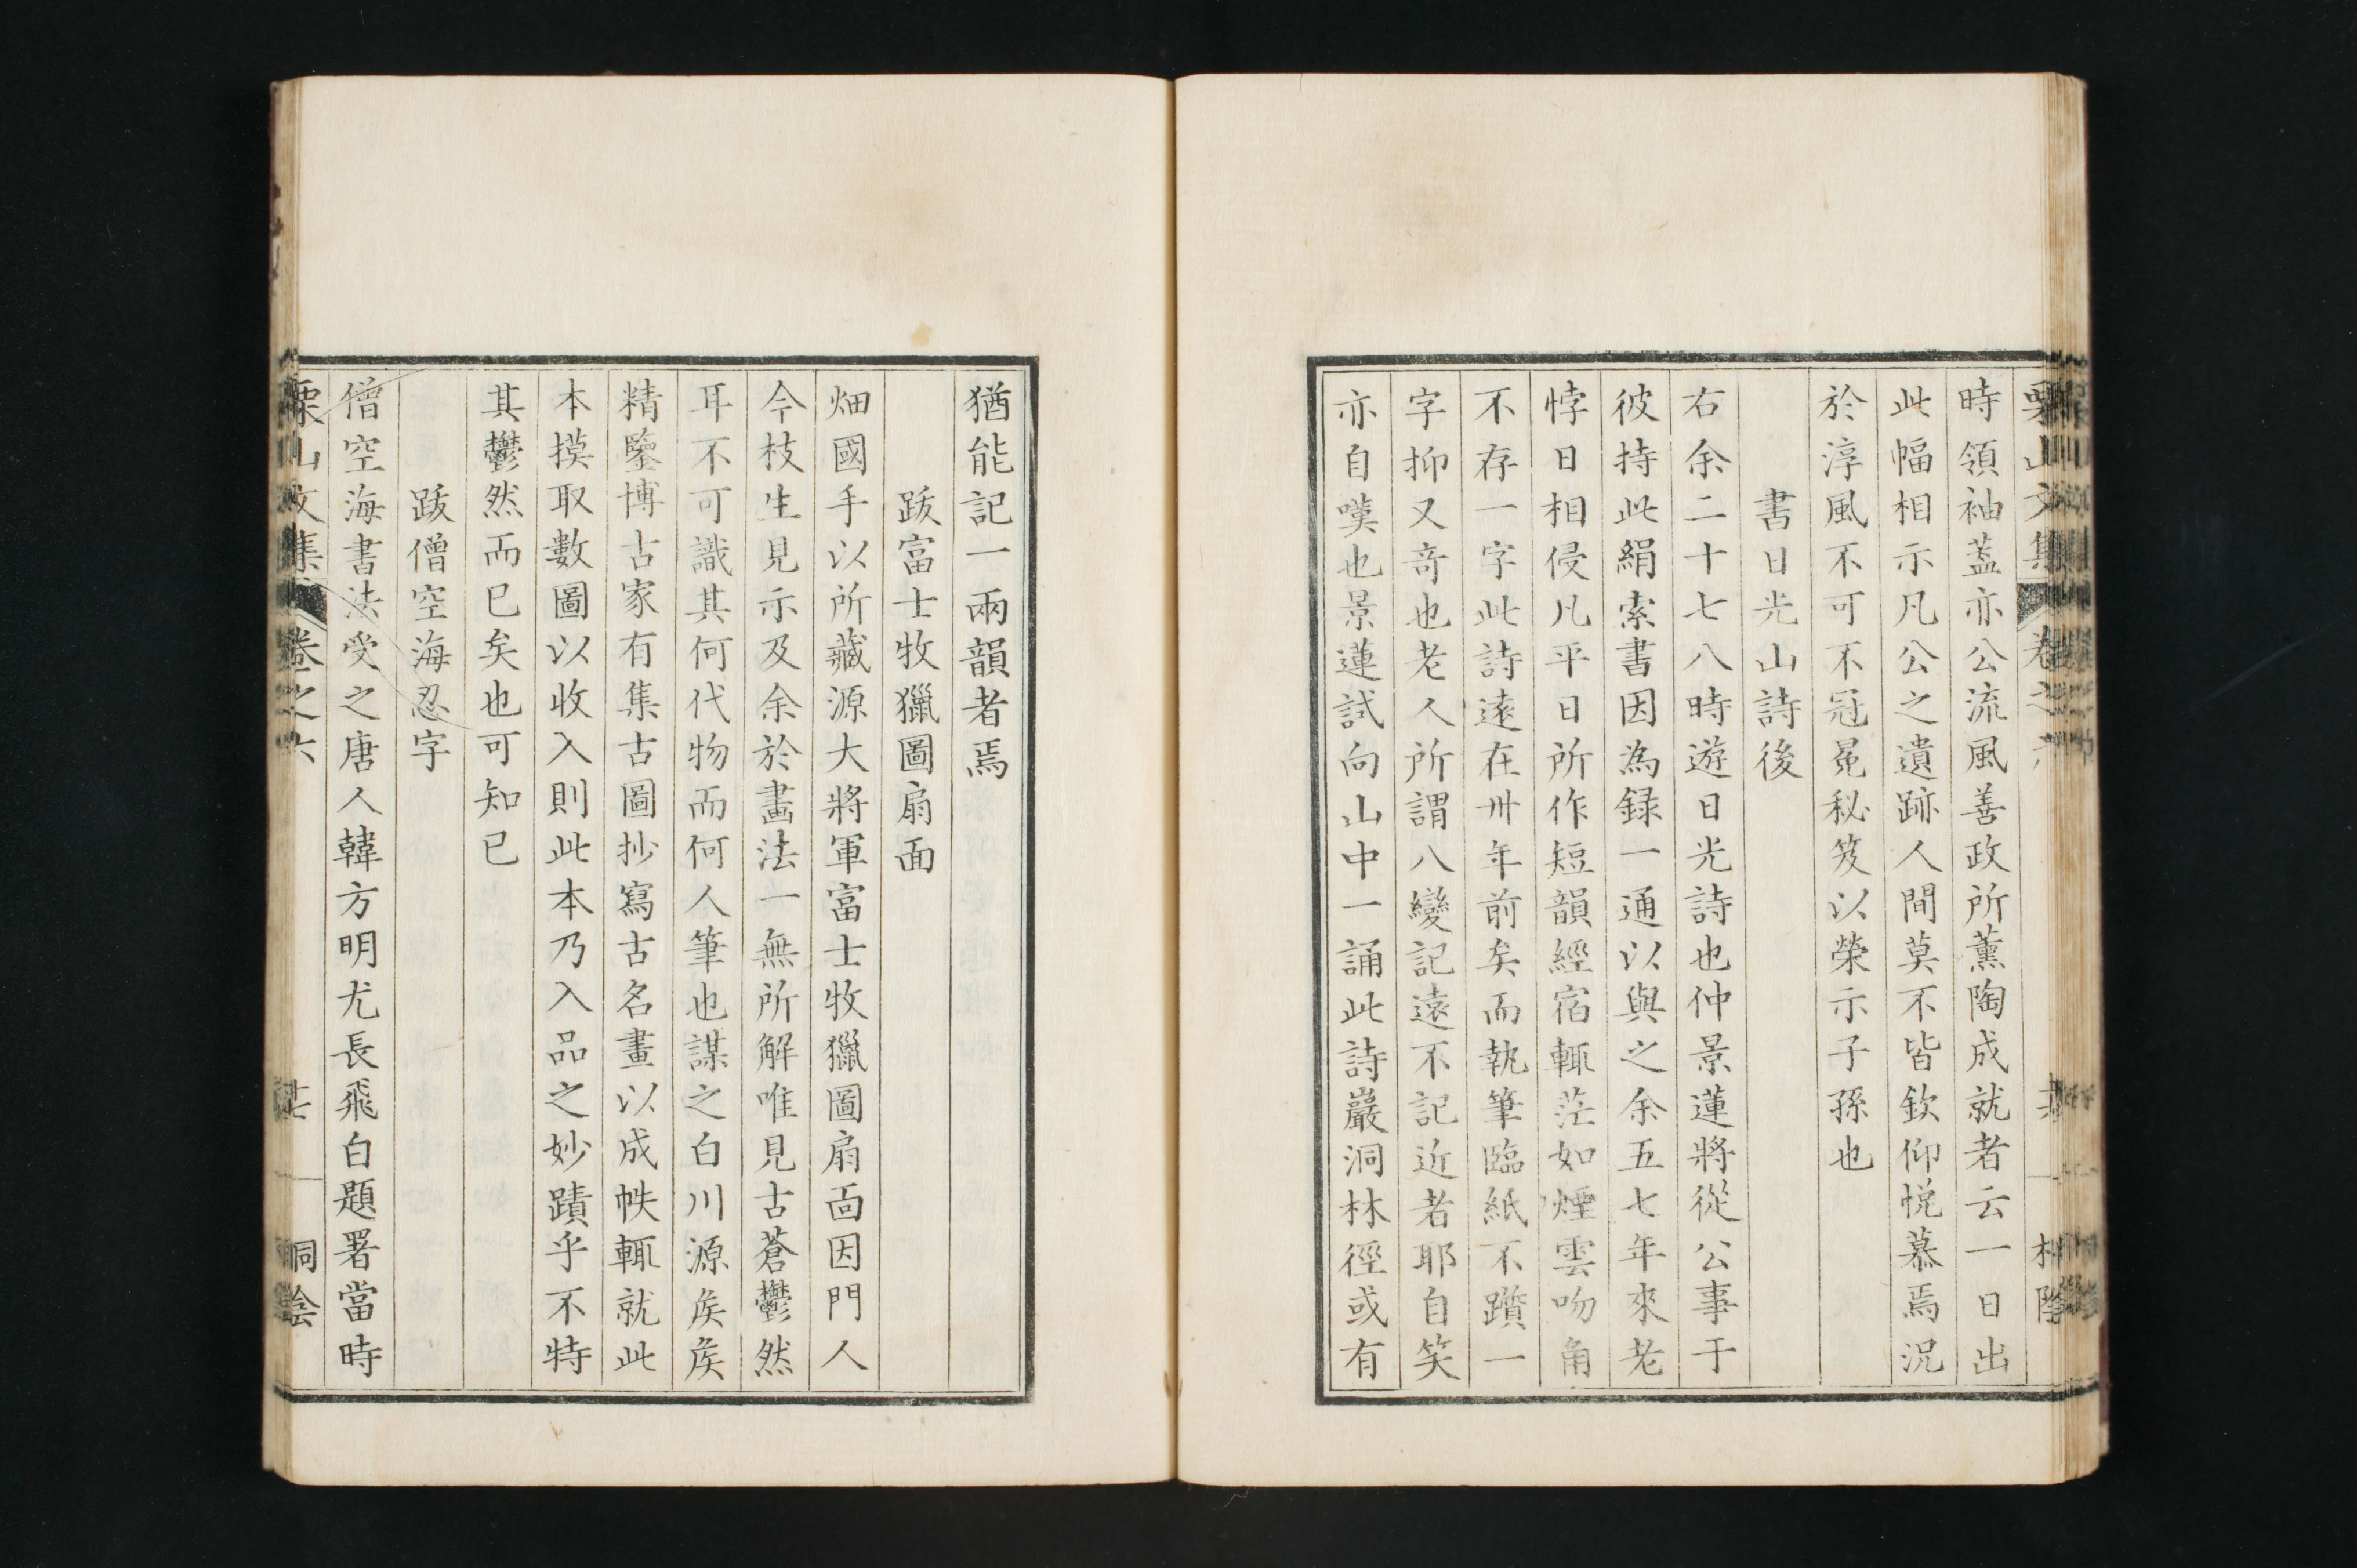 栗山文集 卷之六
時領袖蓋亦公流風善政所薰陶成就者云一日出
此幅相示凡公之遺跡人間莫不皆欽仰悅慕焉況
於淳風不可不冠冕秘笈以榮示子孫也
書日光山詩後
右余二十七八時遊日光詩也仲景蓮將從公事于
彼持此絹索書因為録一通以與之余五七年來老
悖日相侵凡平日所作短韻經宿輒茫如煙雲吻角
不存一字此詩遠在卅年前矣而執筆臨紙不躓一
字抑又奇也老人所謂八變記遠不記近者耶自笑
亦自嘆也景蓮試向山中一誦此詩巖洞林徑或有
猶能記一兩韻者焉
跋富士牧獵圖扇面
畑國手以所藏源大將軍富士牧獵圖扇面因門人
今枝生見示及余於畫法一無所解唯見古蒼鬱然
耳不可識其何代物而何人筆也謀之白川源矦矦
精鑒博古家有集古圖抄寫古名畫以成帙輒就此
本摸取數圖以收入則此本乃入品之妙蹟乎不特
其鬱然而已矣也可知已
跋僧空海忍字
僧空海書法受之唐人韓方明尤長飛白題署當時
栗山文集 卷之六 廿七 桐陰